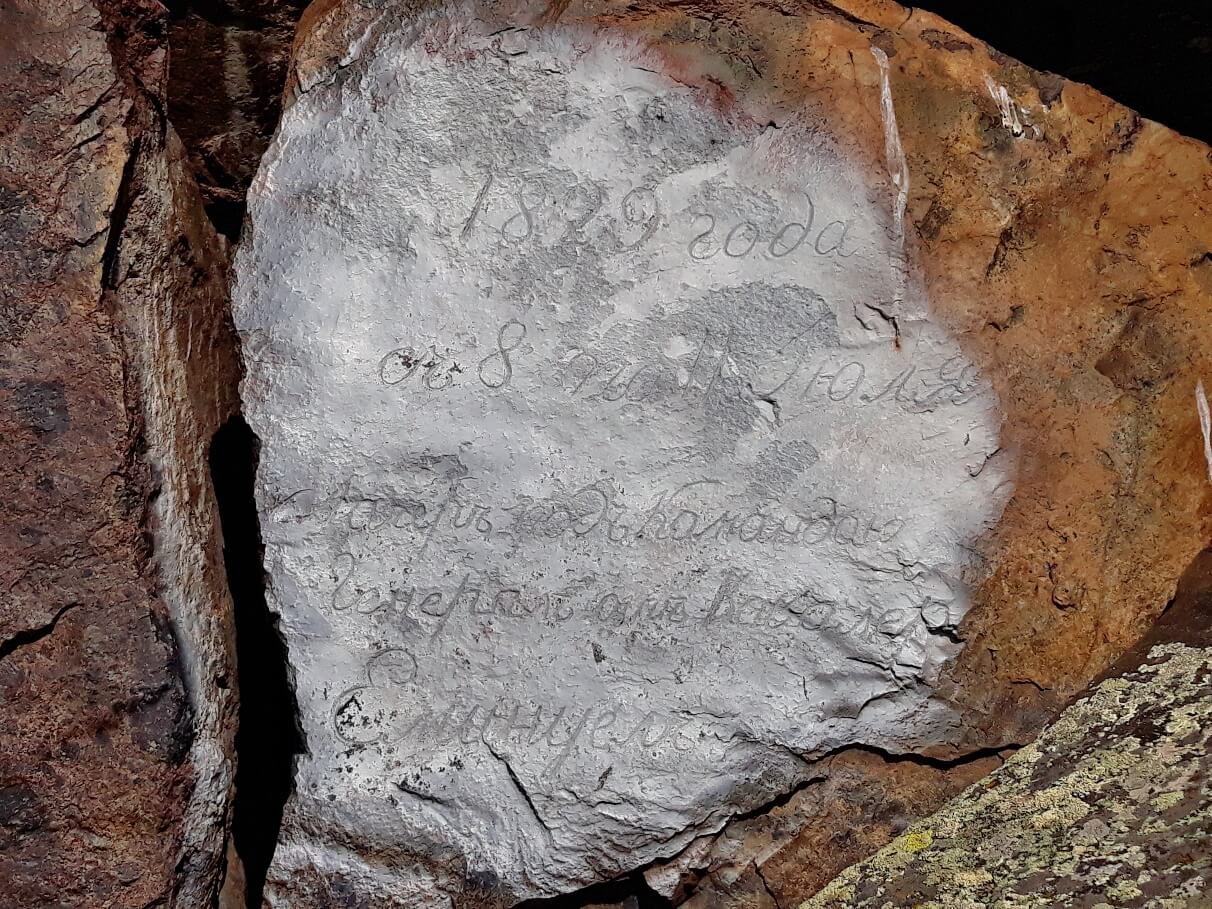 1829 года
съ 8 по 11 Июля
Лагерь подъ Командою
Генерал отъ Кавалер
Емануель